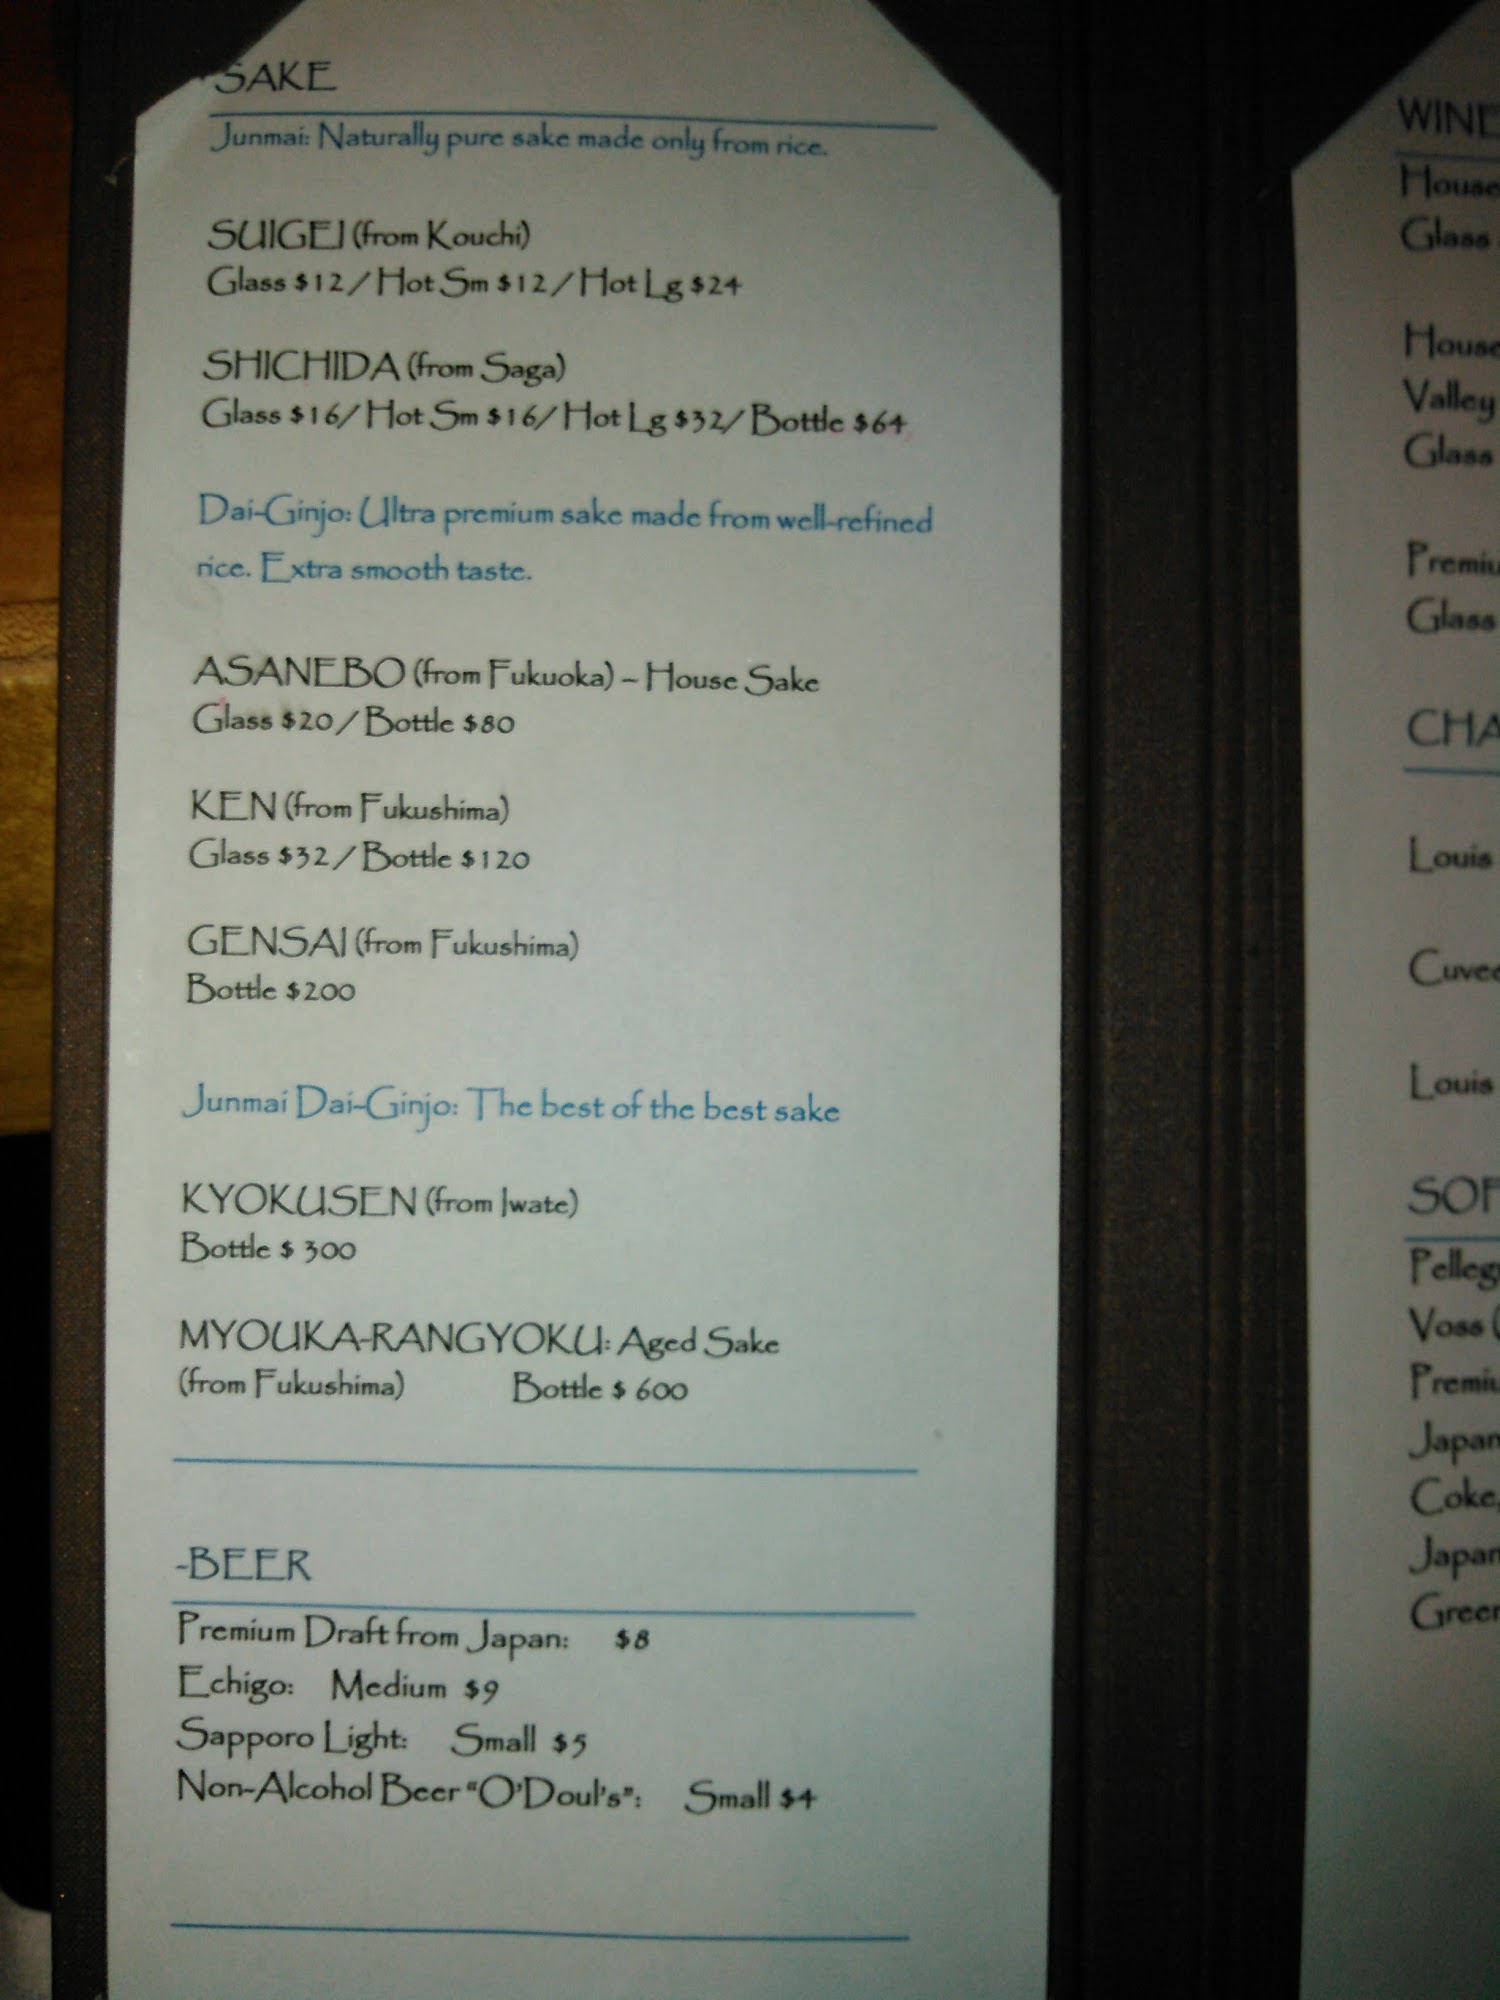 -SAKE
Junmai: Naturally pure sake made only from rice.
SUIGEI (from Kouchi)
Glass $12 / Hot Sm $12 / Hot Lg $24
SHICHIDA (from Saga)
Glass $16/ Hot Sm $16/ Hot Lg $32/ Bottle $64
Dai-Ginjo: Ultra premium sake made from well-refined
rice. Extra smooth taste.
ASANEBO (from Fukuoka) – House Sake
Glass $20 / Bottle $80
KEN (from Fukushima)
Glass $32 / Bottle $120
GENSAI (from Fukushima)
Bottle $200
Junmai Dai-Ginjo: The best of the best sake
KYOKUSEN (from Iwate)
Bottle $ 300
MYOUKA-RANGYOKU: Aged Sake
(from Fukushima) Bottle $ 600
-BEER
Premium Draft from Japan: $8
Echigo: Medium $9
Sapporo Light: Small $5
Non-Alcohol Beer “O’Doul’s”: Small $4
WINE
House
Glass
House
Valley
Glass
Premiu
Glass
CHA
Louis
Cuvee
Louis
SOF
Pelleg
Voss (
Premiu
Japan
Coke,
Japan
Green